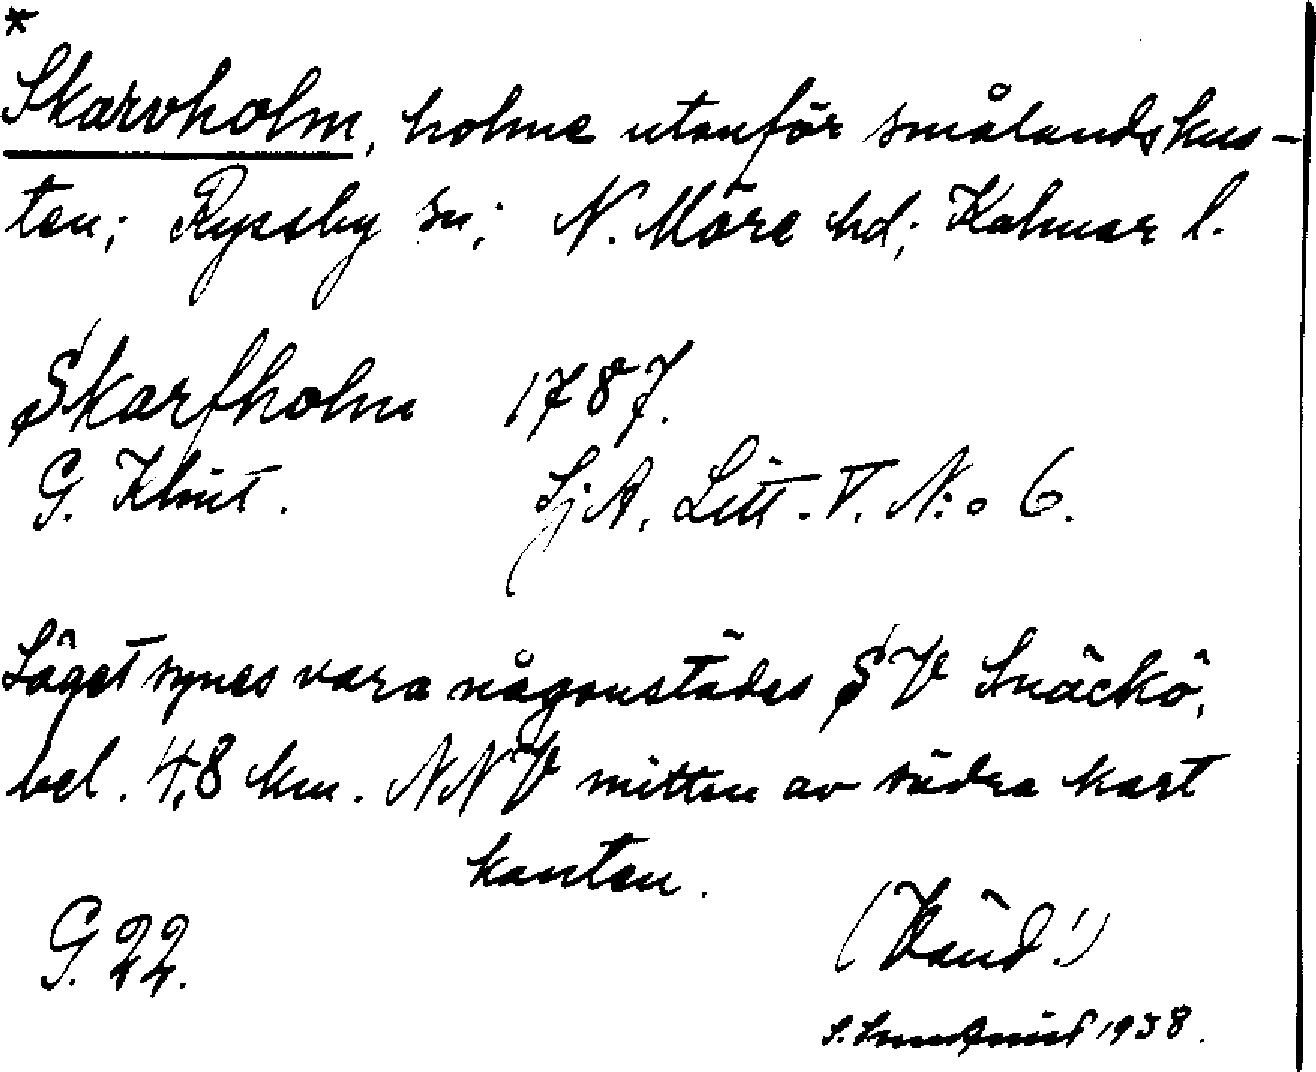 *
Skarvholm, holme utanför smålandskus-
ten; Ryssby sn; N. Möre hd; Kalmar l.
Skarfholm 1787.
G. Klint. Sj A. Litt. V. N:o 6.
Läget synes vara någonstädes SV Snäckö,
bel. 4,8 km. NNV mitten av södra kart
kanten.
G. 22. (Vänd!)
S. 1938.